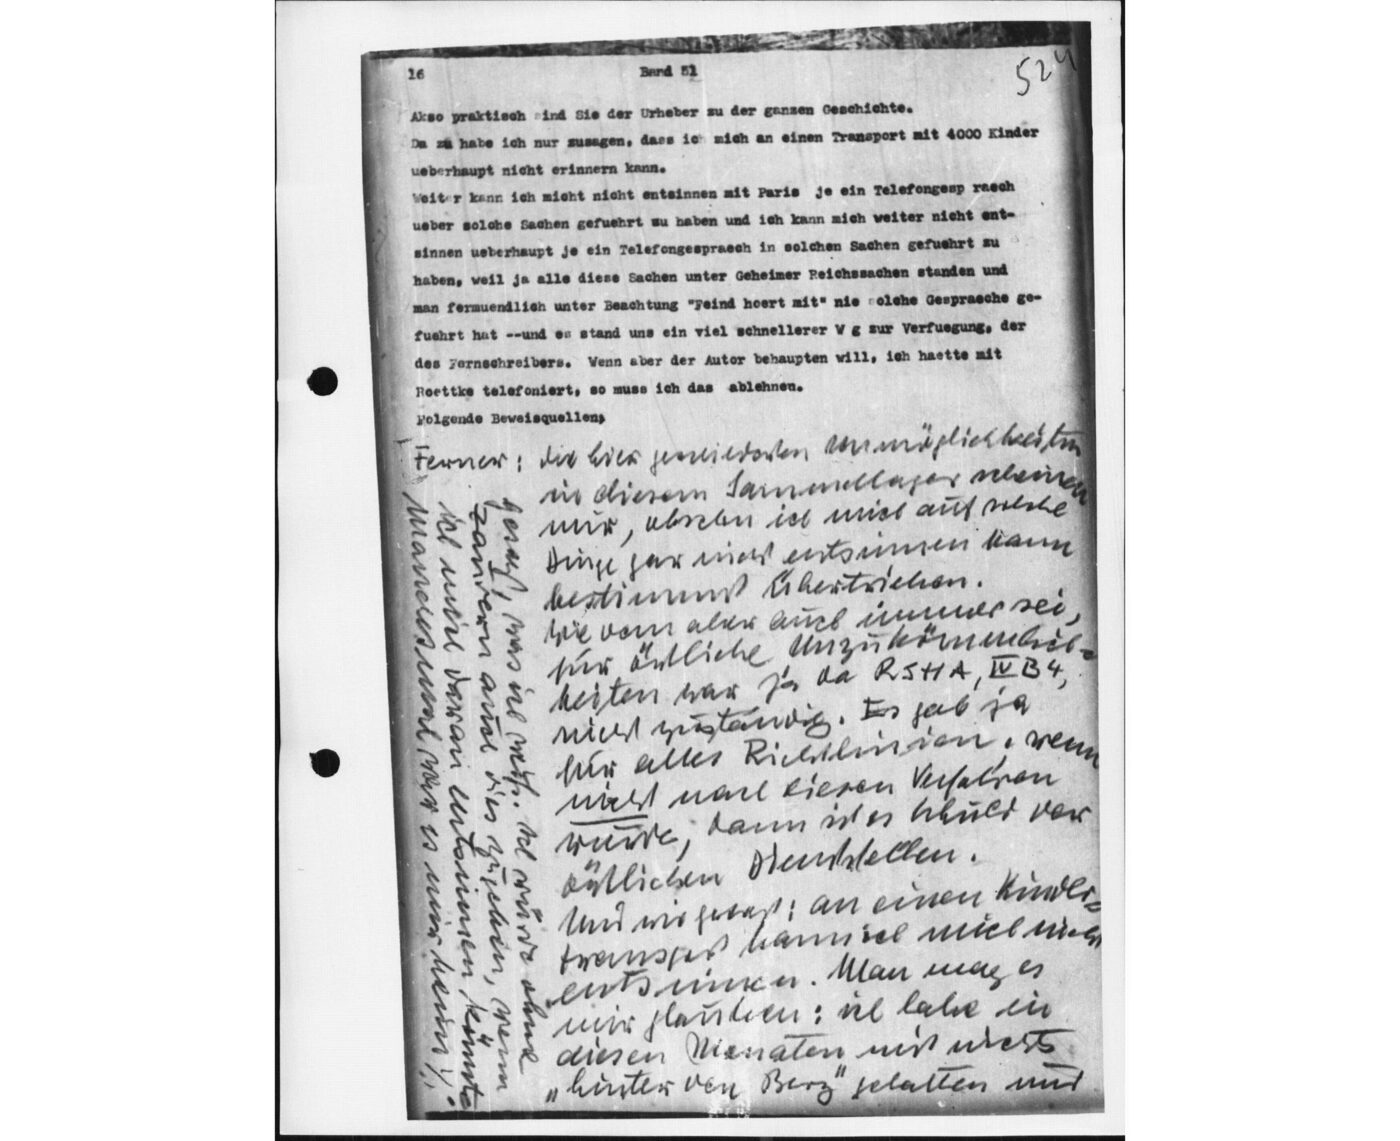 16 Band 51
524
Akso praktisch sind Sie der Urheber zu der ganzen Geschichte.
Da zu habe ich nur zusagen, dass ich mich an einen Transport mit 4000 Kinder
ueberhaupt nicht erinnern kann.
Weiter kann ich micht nicht entsinnen mit Paris je ein Telefongesp raech
ueber solche Sachen gefuehrt zu haben und ich kann mich weiter nicht ent-
sinnen ueberhaupt je ein Telefongespraech in solchen Sachen gefuehrt zu
haben, weil ja alle diese Sachen unter Geheimer Reichssachen standen und
man fermuendlich unter Beachtung "Feind hoert mit" nie solche Gespraeche ge-
fuehrt hat --und es stand uns ein viel schnellerer W g zur Verfuegung, der
des Fernschreibers. Wenn aber der Autor behaupten will, ich haette mit
Roettke telefoniert, so muss ich das ablehnen.
Folgende Beweisquellen;
Ferner: die hier geschilderten Unmöglichkeiten
in diesem Sammellager scheinen
mir, obschon ich mich auf solche
Dinge gar nicht entsinnen kann
bestimmt übertrieben.
Wie dem aber auch immer sei,
für örtliche Unzukömmlich-
keiten war ja da RSHA, IV B4,
nicht zuständig. Es gab ja
für alles Richtlinien, wenn
nicht nach diesen Verfahren
wurde, dann ist es Schuld der
örtlichen Dienststellen.
Und wie gesagt: an einen Kinder-
transport kann ich mich nicht
entsinnen. Man mag es
mir glauben: ich habe in
diesen Monaten mit nichts
"hinter den Berg" gehalten und
gesagt, was ich weiß. Ich würde ohne
zaudern auch dies zugeben, wenn
ich mich daran entsinnen könnte.
Manchesmal war es mir